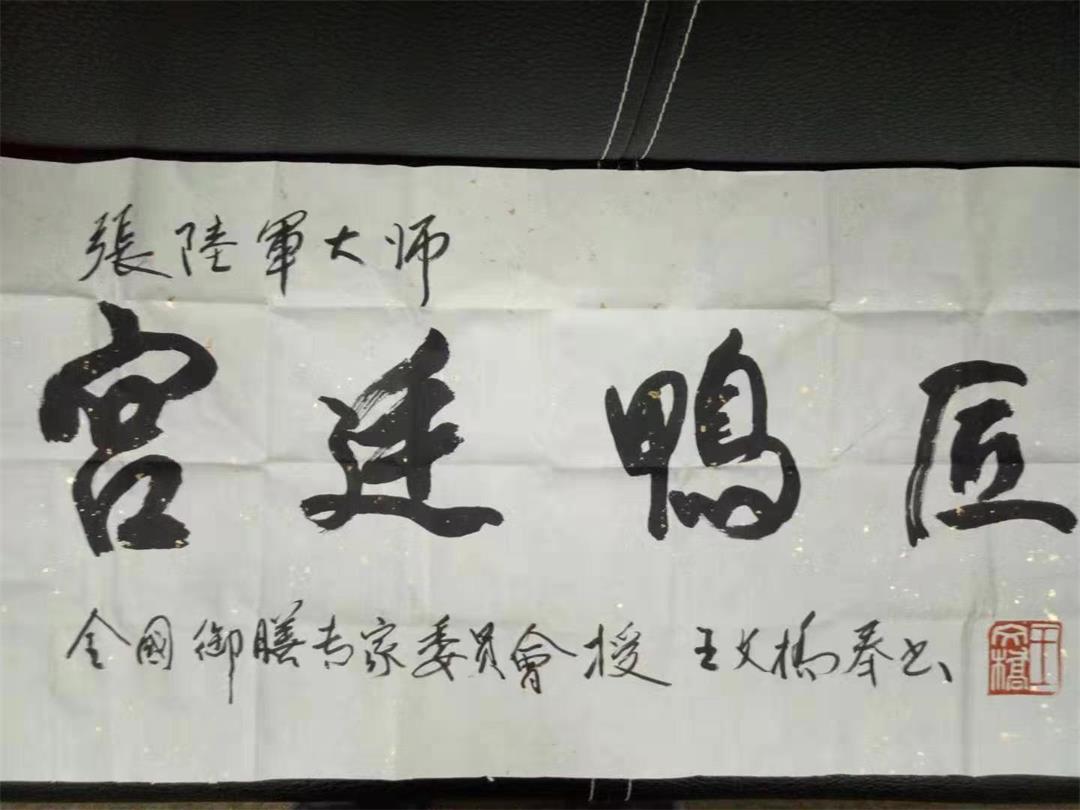 張陸軍大师
宫廷鴨匠
全國御膳专家委員會授 王文橋奉书
王文橋